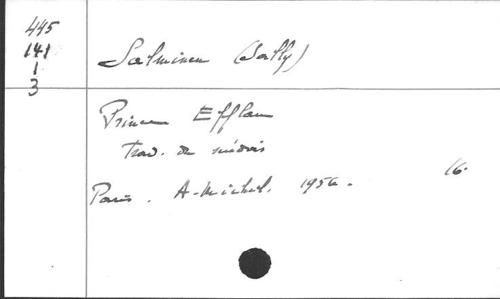 445
141
1
3
Salminen (Sally)
Prince Efflam
Trad. du suédois
Paris. A. Michel. 1956.
16